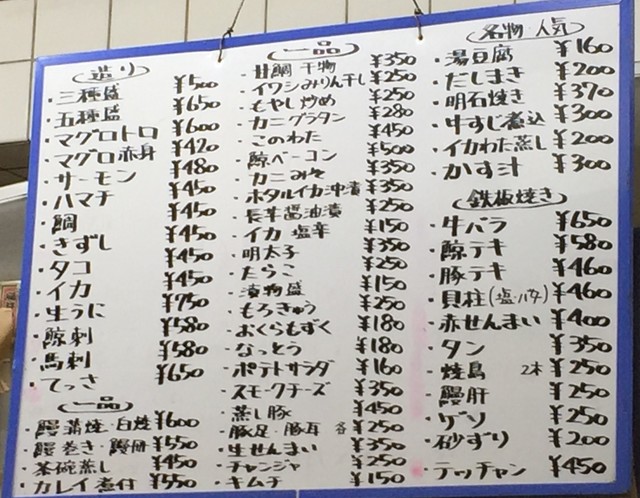 造り
・三種盛 ¥500
・五種盛 ¥650
・マグロトロ ¥600
・マグロ赤身 ¥420
・サーモン ¥480
・ハマチ ¥450
・鯛 ¥450
・きずし ¥450
・タコ ¥450
・イカ ¥450
・生うに ¥750
・鯨刺 ¥580
・馬刺 ¥580
・てっさ ¥650
一品
・鰻蒲焼・白焼 ¥600
・鰻巻き・ ¥550
・茶碗蒸し ¥450
・カレイ煮付 ¥550
一品
・甘鯛 干物 ¥350
・イワシみりん干し ¥250
・もやし炒め ¥250
・カニグラタン ¥280
・このわた ¥450
・鯨ベーコン ¥500
・カニみそ ¥350
・ホタルイカ沖漬 ¥350
・長芋醤油漬 ¥250
・イカ塩辛 ¥150
・明太子 ¥350
・たらこ ¥250
・漬物盛 ¥150
・もろきゅう ¥250
・おくらもずく ¥180
・なっとう ¥180
・ポテトサラダ ¥160
・スモークチーズ ¥350
・蒸し豚 ¥450
・豚足・豚耳 各¥250
・生せんまい ¥350
・チャンジャ ¥250
・キムチ ¥150
名物 人気
・湯豆腐 ¥160
・だしまき ¥200
・明石焼き ¥370
・牛すじ煮込 ¥300
・イカわた蒸し ¥200
・かす汁 ¥300
鉄板焼き
・牛バラ ¥650
・鯨テキ ¥580
・豚テキ ¥460
・貝柱(塩・バタ) ¥460
・赤せんまい ¥400
・タン ¥350
・焼鳥 2本 ¥250
・鰻肝 ¥250
・ゲソ ¥250
・砂ずり ¥200
・テッチャン ¥450